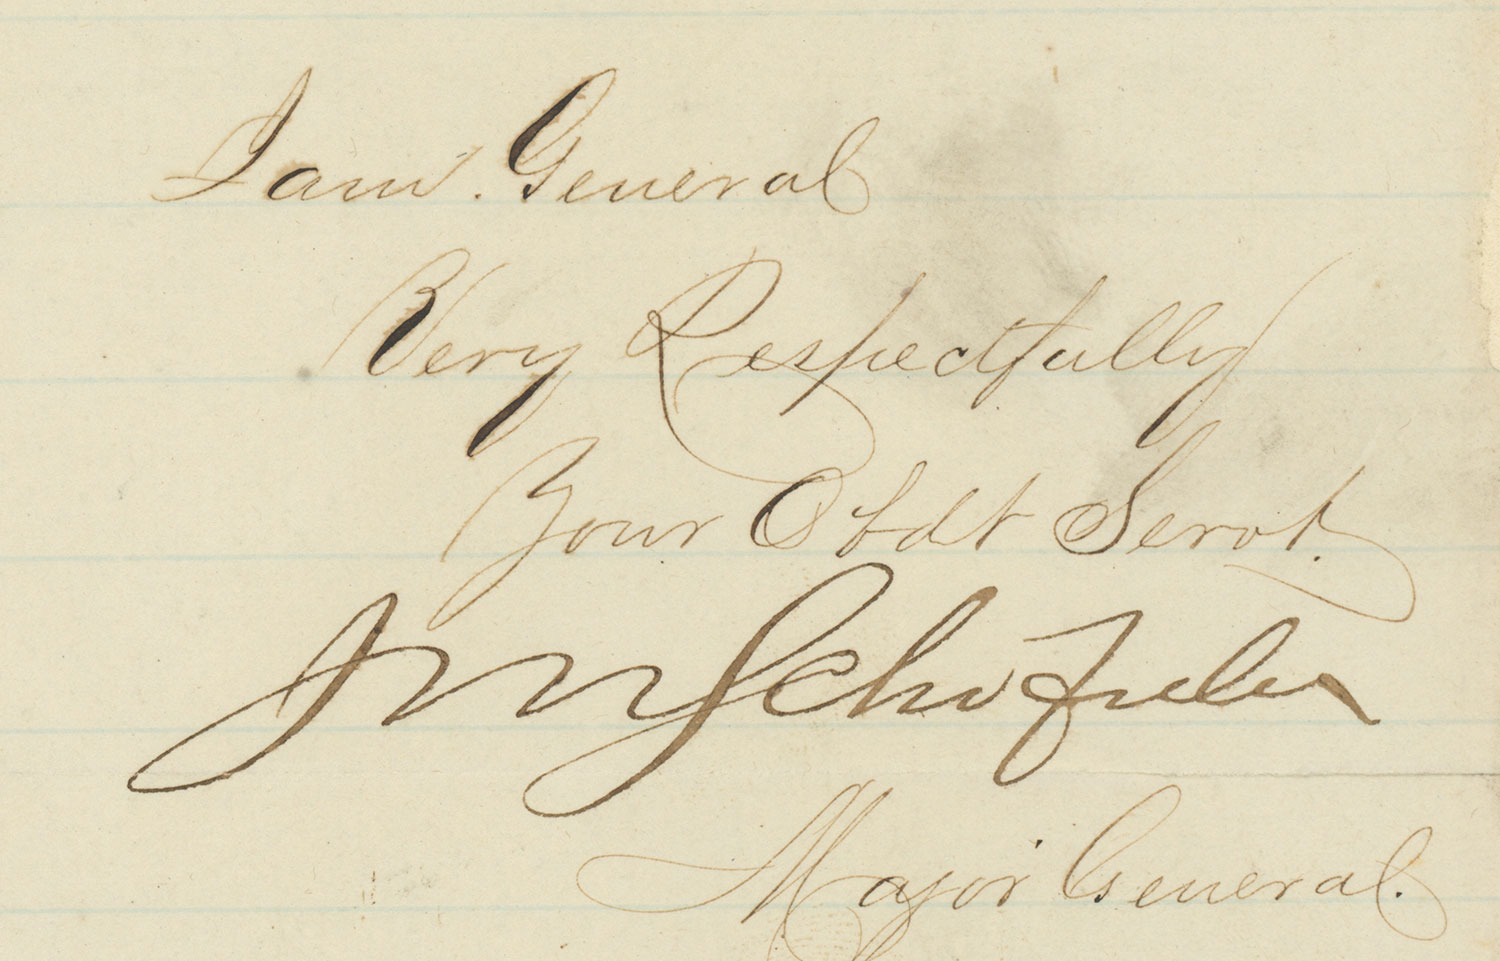 I am. General
Very Respectfully
Your Obdt Servt.
JM Schofield
Major General.